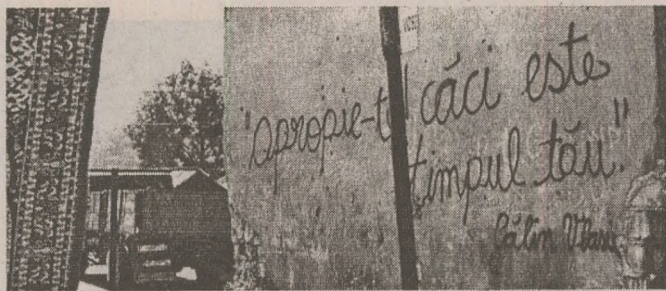 "apropie-te căci este
timpul tău."
Călin Vlasie